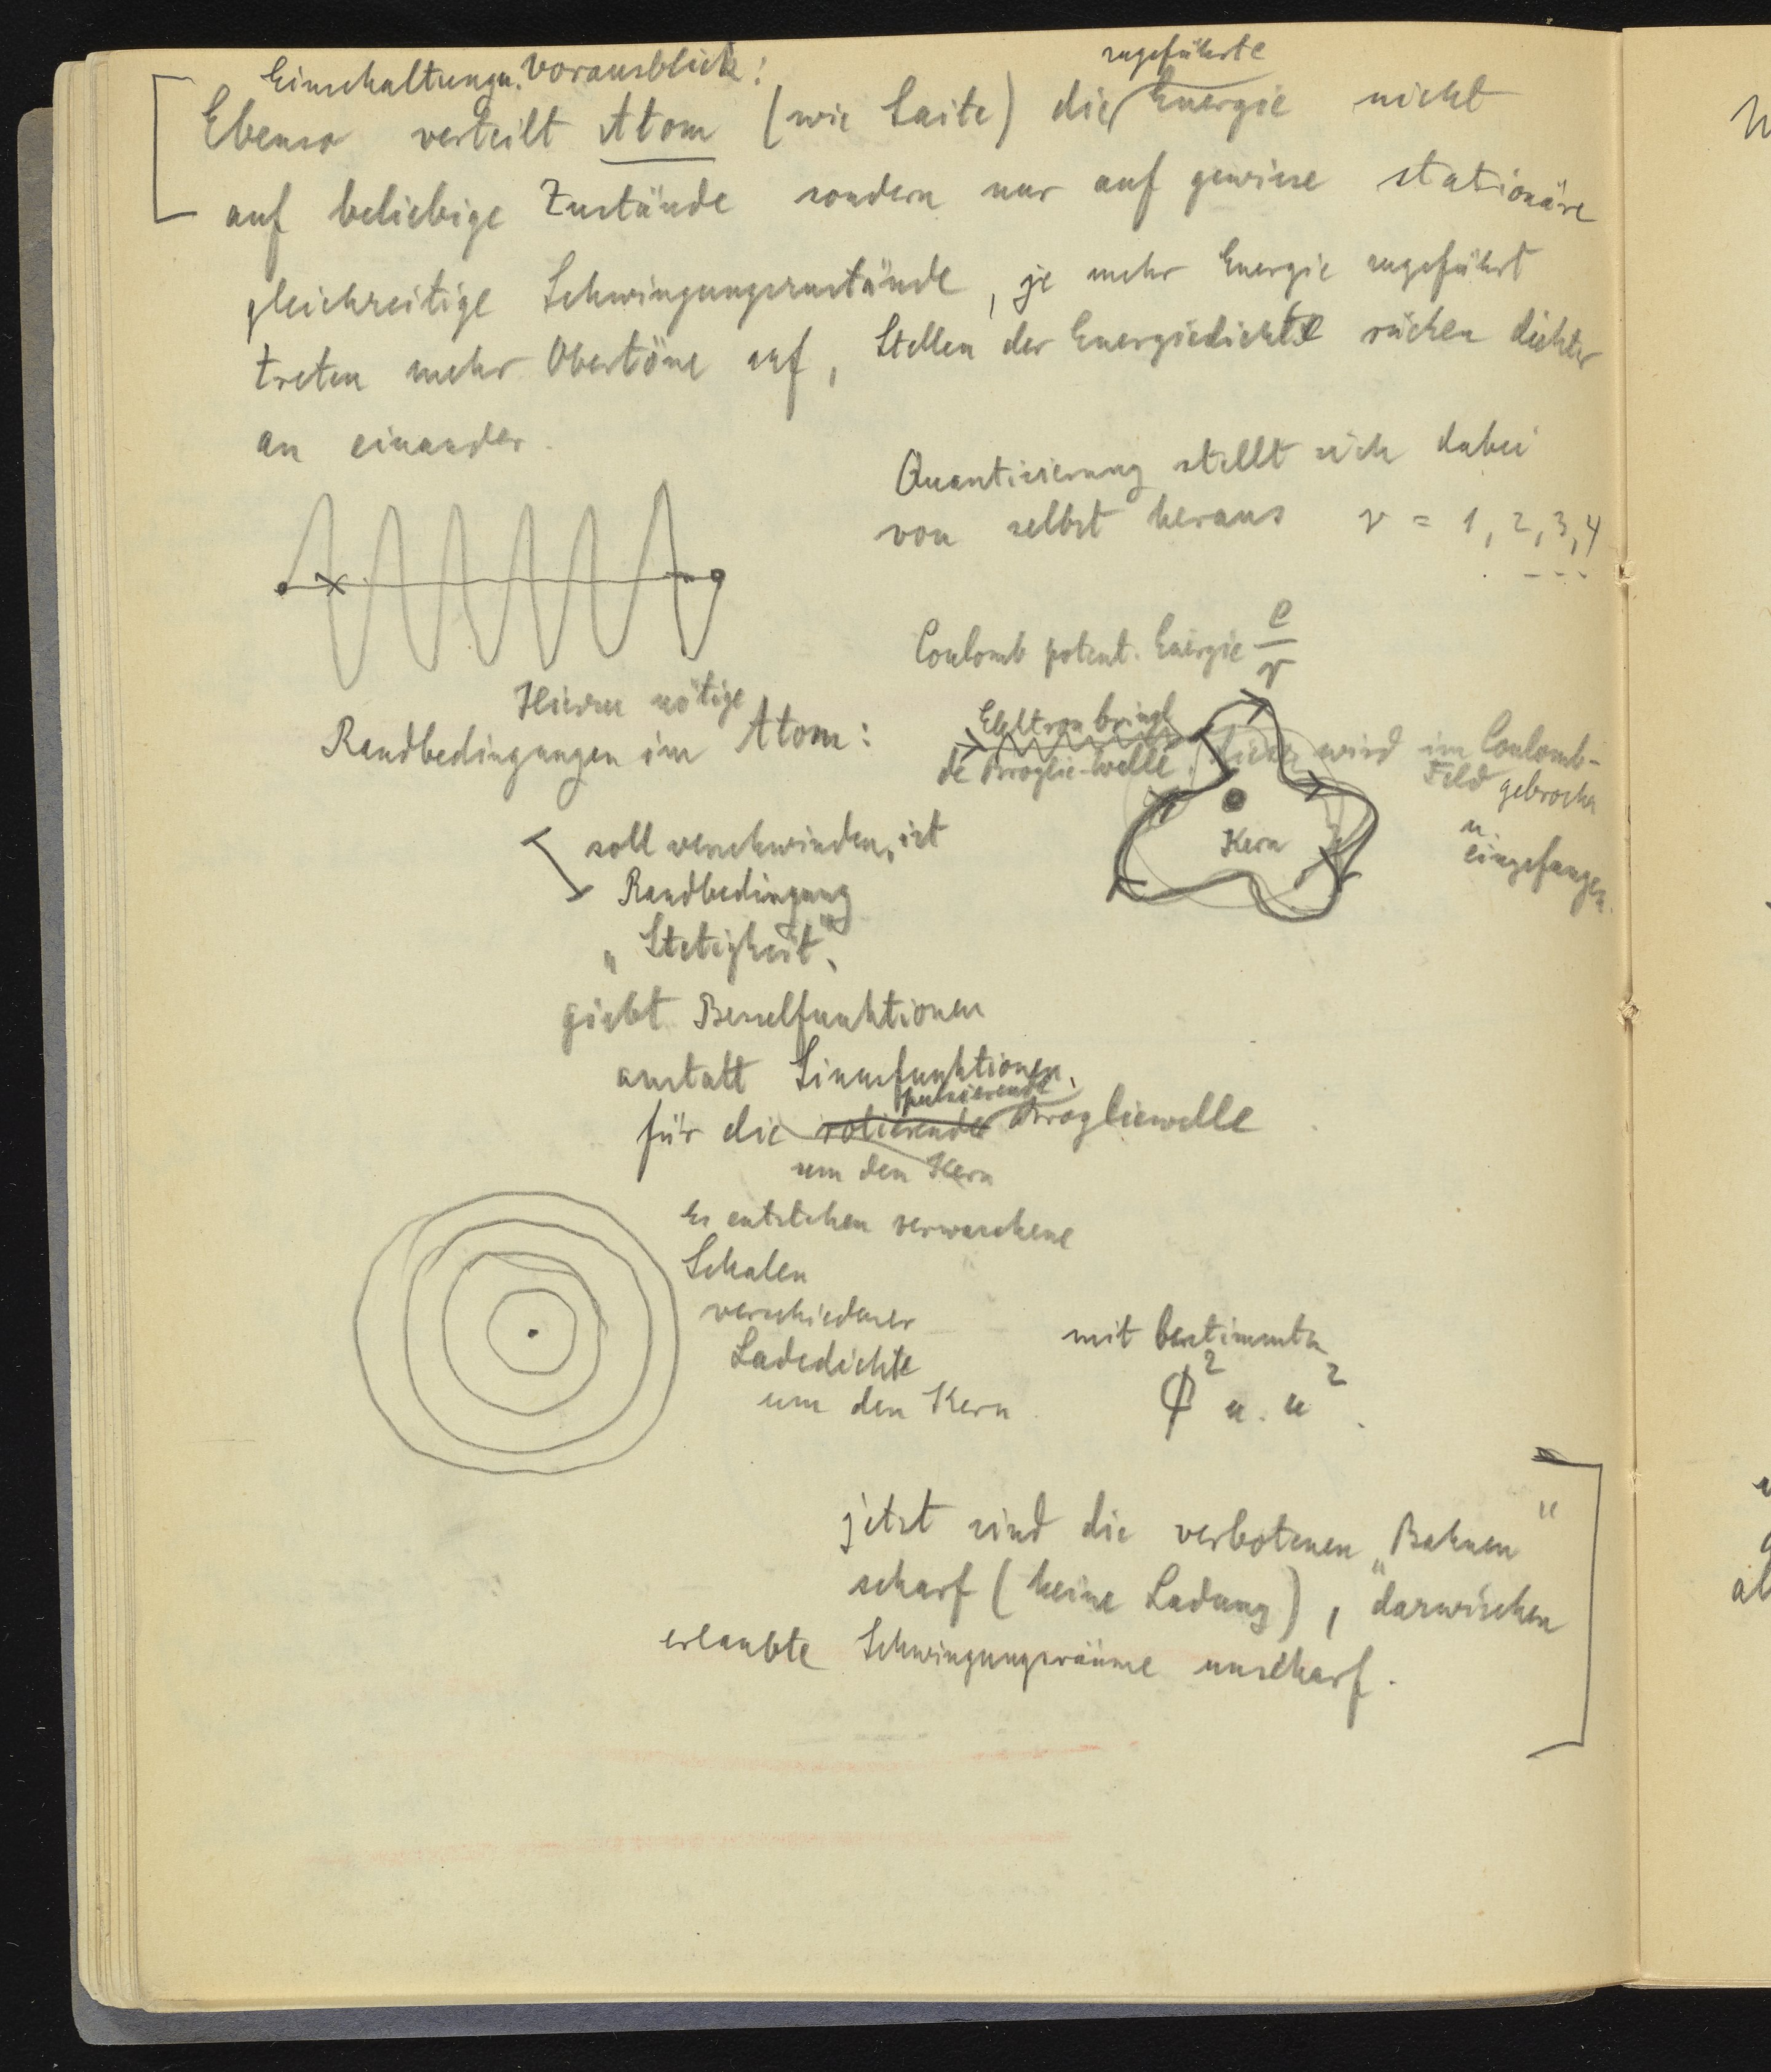 Einschaltung u. Vorausblick:
zugeführte
Ebenso verteilt Atom (wie Saite) die Energie nicht
auf beliebige Zustände sondern nur auf gewisse stationäre
gleichzeitige Schwingungszustände, je mehr Energie zugeführt
treten mehr Obertöne auf, Stellen der Energiedichte rücken dichter
an einander.
Quantisierung stellt sich dabei
von selbst heraus ν = 1, 2, 3, 4
. - - -
Coulomb potent. Energie e/r
Hierzu nötige
Randbedingungen im Atom:
Elektron bringt
de Broglie-Welle, diese wird im Coulomb-
Feld gebrochen
u.
eingefangen.
Kern
soll verschwinden, ist
Randbedingung
„Stetigkeit",
giebt Besselfunktionen
anstatt Sinusfunktionen,
pulsierende
für die rotierende Brogliewelle
um den Kern
Es entstehen verwaschene
Schalen
verschiedener
Ladedichte
um den Kern
mit bestimmten
ϕ² u. u².
jetzt sind die verbotenen „Bahnen"
scharf (keine Ladung), dazwischen
erlaubte Schwingungsräume unscharf.